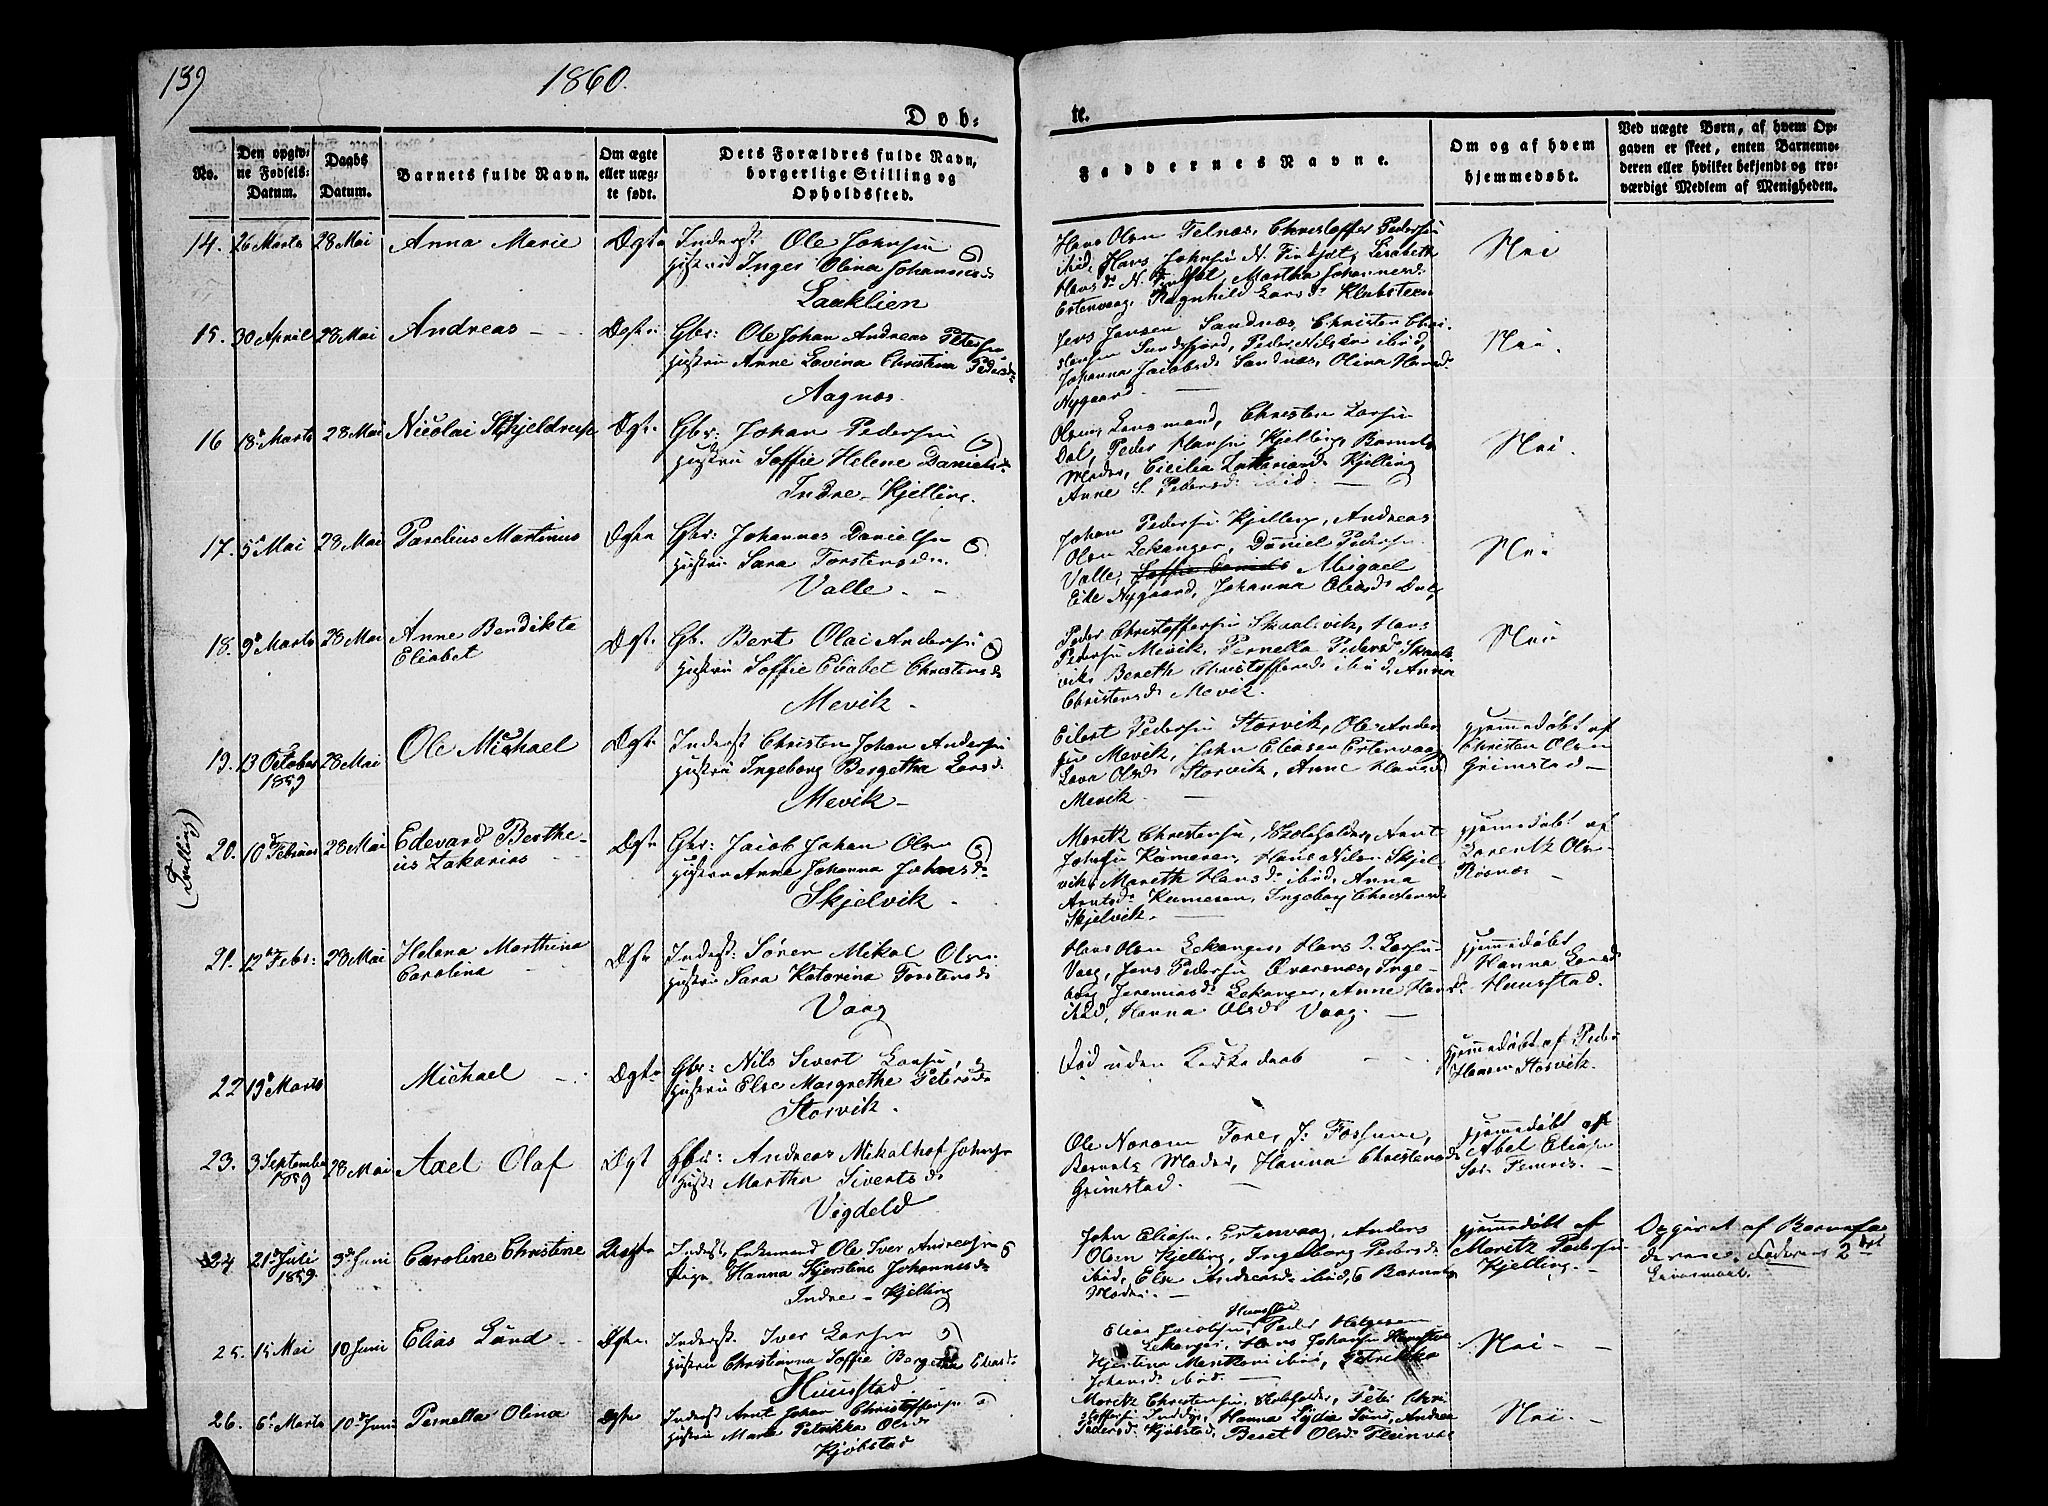 139
1860.
Døb-
te.
No.
Den opgiv-
ne Fødsels-
Datum.
Daabs
Datum.
Barnets fulde Navn.
Om ægte
eller uæg-
te født.
Dets Forældres fulde Navn,
borgerlige Stilling og
Opholdssted.
Faddernes Navne.
Om og af hvem
hjemmedøbt.
Ved uægte Børn, af hvem Op-
gaven er skeet, enten Barnemo-
deren eller hvilket bekjendt og tro-
værdigt Medlem af Menigheden.
14. 26 Marts 28 Mai Anna Marie Ægte Inderst Ole Johnsen
Hustru Inger Olina Johannesd
Laaklien
Hans Olsen Felnæs, Christoffer Pedersen
ibid, Hans Johnsen N. Finkjøt, Lisabeth
Hansd N. Martha Johannesd
Estenvaag, Ragnhild Larsd Klubsteen
Nei
15. 30 April 28 Mai Andreas Ægte Gbr: Ole Johan Andreas Petersen
Hustru Anne Lovina Christina Pedersd
Aagnæs.
Jens Jensen Sandnæs, Christen Chri-
stensen Sundsfjord, Peder Nilsen ibid,
Johanna Jacobsd Sandnæs, Olina Hansd
Nygaard.
Nei.
16 18 Marts 28 Mai Nicolai Skjeldrup Ægte Gbr: Johan Pedersen
Hustru Soffie Helene Danielsd
Indre-Kjelling.
Olsen, Lensmand, Christen Larsen
Dal, Peder Hansen Kjelling, Barnets
Moder, Cicilia Zakariasd Kjelling
Anne S. Pedersd ibid.
Nei.
17. 5 Mai 28 Mai Parelius Martinus Ægte Gbr: Johannes Danielsen
Hustru Sara Torstensd
Valle.
Johan Pedersen Kjelling, Andreas
Olsen Lekanger, Daniel Pedersen
Valle, Soffie Daniels Abigael
Eike Nygaard, Johanna Oleasd Dal,
Nei
18. 9 Marts 28 Mai Anne Bendikte
Elisabet
Ægte Gb. Bert Olai Andersen
Hustru Soffie Elisabet Christensd
Mevik.
Peder Christoffersen Skaalsvik, Hans
Pedersen Mevik, Pernella Pedersd Skaals
vik, Bereth Christoffersd ibid, Anna
Christensd Mevik.
Nei
19. 13 October 28 Mai Ole Michael Ægte Inderst Christen Johan Andersen
1859
Hustru Ingeborg Bergetha Larsd
Mevik-
Eilert Pedersen Storvik, Ole Ander
sen Mevik, John Eliasen Estenvaag
Lava Olsd Storvik, Anne Hansd
Mevik.
Hjemmedøbt af
Christen Olsen
Grimstad-
(Tvilling)
20. 10 Februar 28 Mai Edevard Berthe-
us Zakarias
Ægte Gbr: Jacob Johan Olsen
Hustru Anne Johanna Johansd
Skjelvik.
Moritz Christensen, Skoleholder, Arnt
Johnsen Kunnesen, Hans Nilsen Skjel
vik, Mareth Hansd ibid, Anna
Arntsd Kunnesen, Ingeborg Christensd
Skjelvik.
Hjemmedøbt af
Lorentz Olsen
Røsnæs
21. 12 Febr: 28 Mai Helena Marthina
Carolina
Ægte Inderst: Søren Mikal Olsen
Hustru Sara Katarina Torstensd
Vaag
Hans Olsen Lekanger, Hans P. Larsen
Vaag, Jens Pedersen Qvarsnæs, Inge-
borg Jeremiasd Lekanger, Anne Hansd
ibid, Hanna Olsd Vaag.
Hjemmedøbt
Hanna Larsd
Hunstad.
22 19 Marts Michael Ægte Gbr: Nils Sivert Larsen
Hustru Else Margrethe Petersd
Storvik.
Død uden Kirkedaab
Hjemmedøbt af Peder
Hansen Storvik.
23. 3 September 28 Mai Axel Olaf Ægt Gbr: Andreas Mikalhof Johnsen
1859
Hust: Martha Sivertsd
Vigdeld
Ole Norum Fore, J. Fossum,
Barnets Moder, Hanna Christensd
Grimstad.
Hjemmedøbt af
Abel Eliasen
Sør Femris.
24 21 Juli 3 Juni Caroline Christine Uægte Inderst, Enkemand Ole Iver Andreasen
1859.
Pige Hanna Kjerstine Johannesd
Indre-Kjelling
John Eliasen, Estenvaag, Anders
Olsen Kjelling, Ingeborg Pedersd
ibid, Else Andreasd ibid, & Barnets
Moder.
Hjemmedøbt af
Moritz Pedersen
Kjelling.
Opgivet af Barnefa
deren, Faderens 2det
Leiermaal.
25. 15 Mai 10 Juni Elias Lund Ægte Inderst. Iver Larsen
Hustru Christianna Soffie Bergetha Eliasd
Hunstad.
Hunstad
Elias Jacobsen, Peder Helgesen
Lekanger, Hans Johansen Hunstad
Kjerstina Mentsoni ibid, Petrikka
Johansd ibid.
Nei-
26. 6 Marts 10 Juni Pernella Olina Ægte Inderst Arnt Johan Christoffersen
Hustru Maria Petrikka Olsd
Kjøbstad
Moritz Christensen, Skoleholder, Peter Chri
stoffersen Inddyr, Hanna Lydia Lund, Andrea
Pedersd Kjøbstad, Beret Olsd Fleinvær
Nei.